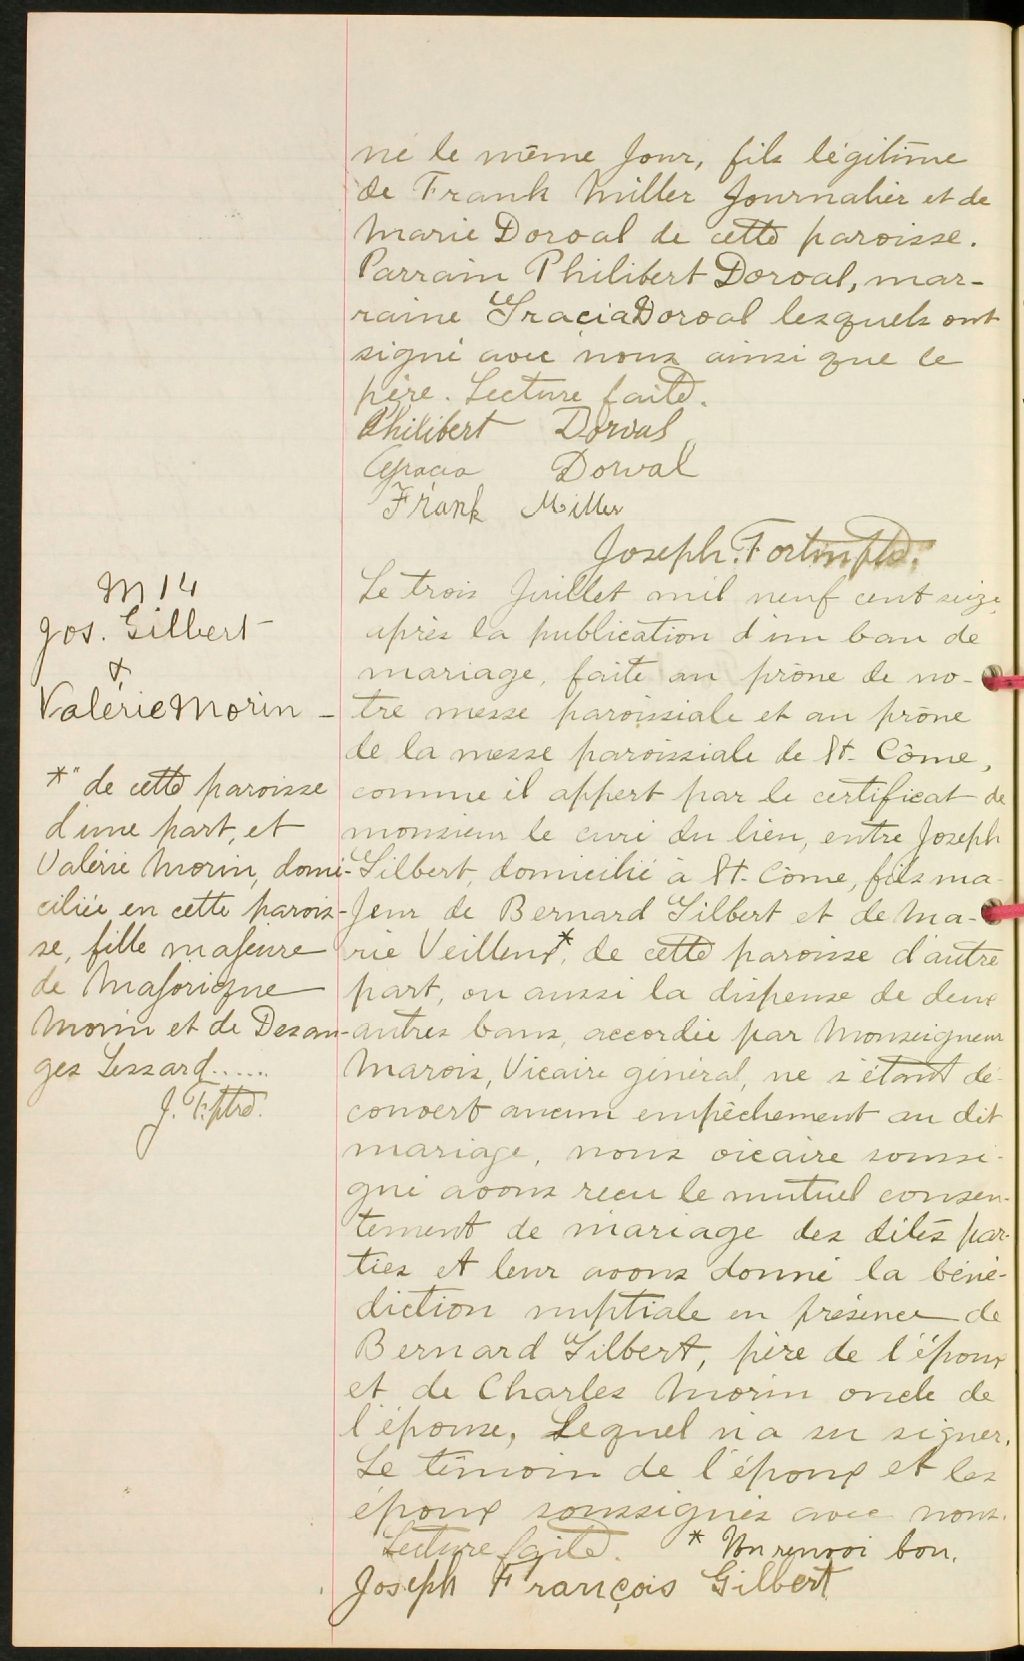 né le même jour, fils légitime
de Frank Miller journalier et de
Marie Dorval de cette paroisse.
Parrain Philibert Dorval, mar-
raine Gracia Dorval lesquels ont
signé avec nous ainsi que le
père. Lecture faite.
Philibert Dorval
Gracia Dorval
Frank Miller
Joseph. Fortin ptre.
M 14
Jos. Gilbert
&
Valérie Morin -
Le trois Juillet mil neuf cent seize
après la publication d'un ban de
mariage, faite au prône de no-
tre messe paroissiale et au prône
de la messe paroissiale de St. Côme,
comme il appert par le certificat de
monsieur le curé du lieu, entre Joseph
Gilbert, domicilié à St. Côme, fils ma-
jeur de Bernard Gilbert et de Ma-
rie Veilleux*, de cette paroisse d'autre
part, vu aussi la dispense de deux
autres bans, accordée par Monseigneur
Marois, Vicaire général, ne s'étant dé-
couvert aucun empêchement au dit
mariage, nous vicaire soussi-
gné avons reçu le mutuel consen-
tement de mariage des dites par-
ties et leur avons donné la béné-
diction nuptiale en présence de
Bernard Gilbert, père de l'époux
et de Charles Morin oncle de
l'épouse, Lequel n'a su signer.
Le témoin de l'époux et les
époux soussignés avec nous.
Lecture faite. * Un renvoi bon.
Joseph François Gilbert
*" de cette paroisse
d'une part, et
Valérie Morin, domi-
ciliée en cette parois-
se, fille majeure
de Majorique
Morin et de Desan-
ges Lessard......
J. F. ptre.